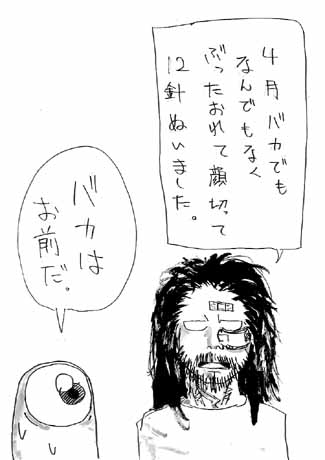 4月バカでも
なんでもなく
ぶったおれて顔切って
12針ぬいました。
バカは
お前だ。